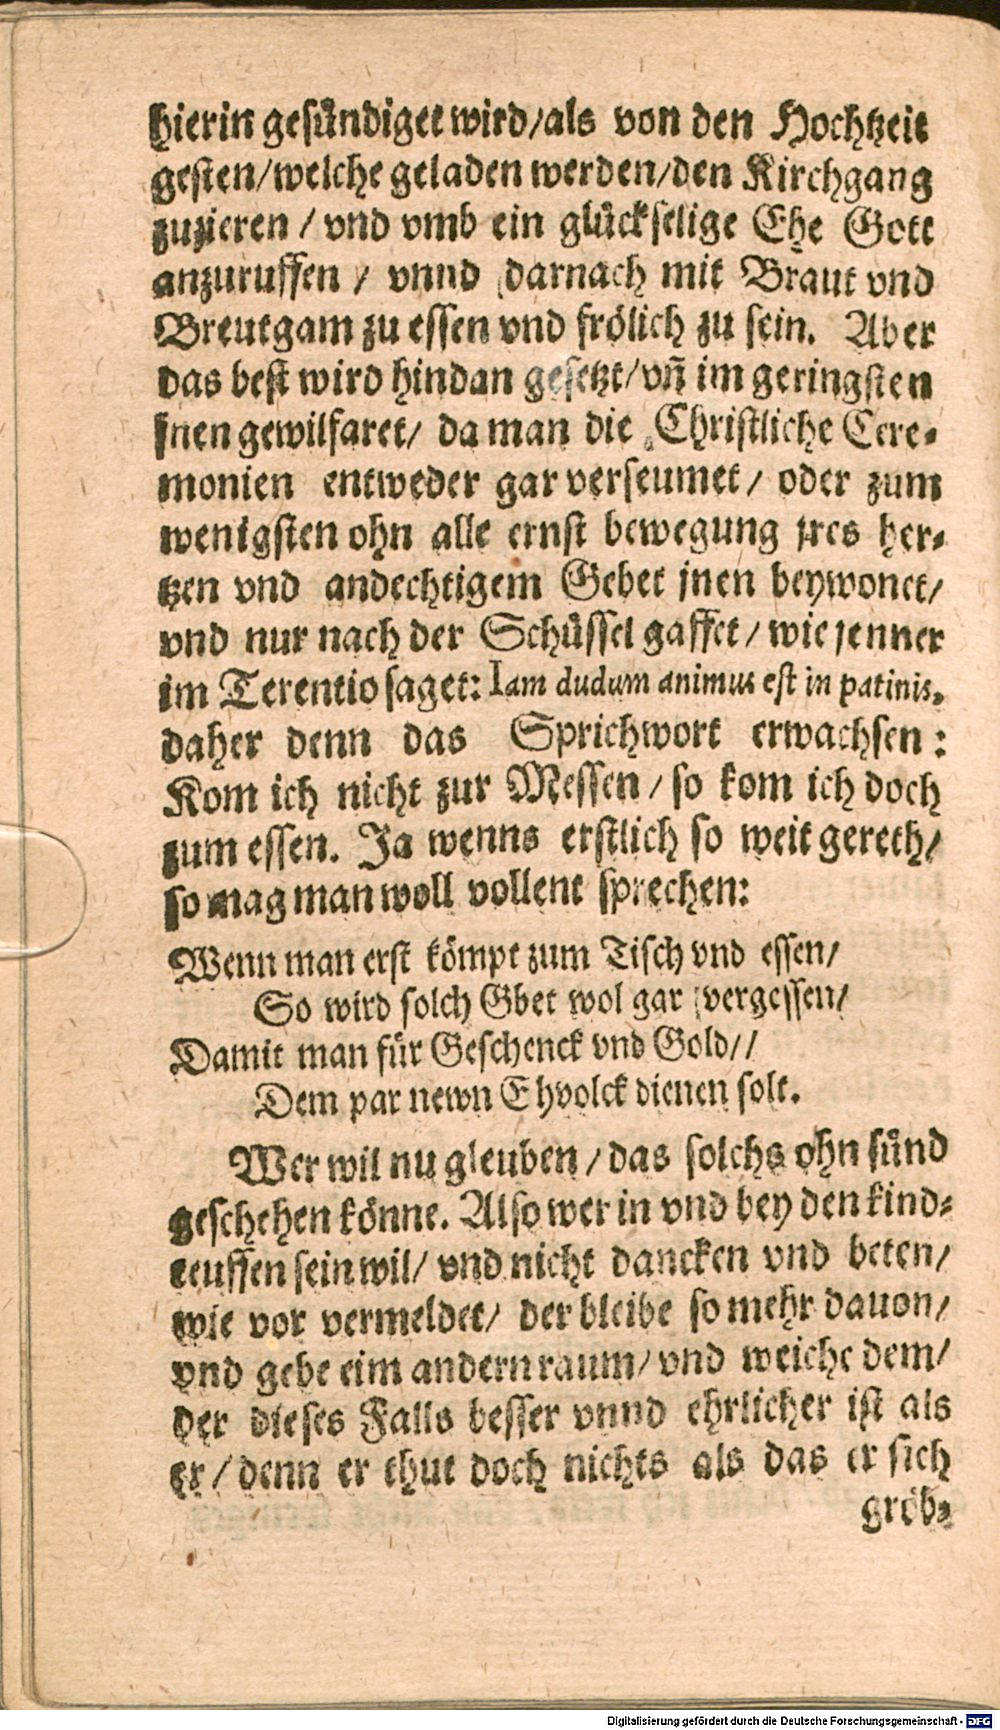 hierin gesündiget wird/als von den Hochtzeit
gesten/welche geladen werden/den Kirchgang
zuzieren / vnd vmb ein glückselige Ehe Gott
anzuruffen / vnnd darnach mit Braut vnd
Breutgam zu essen vnd frölich zu sein. Aber
das best wird hindan gesetzt/vñ im geringsten
jnen gewilfaret/ da man die Christliche Cere-
monien entweder gar verseumet/ oder zum
wenigsten ohn alle ernst bewegung jres her-
tzen vnd andechtigem Gebet jnen beywonet/
vnd nur nach der Schüssel gaffet/ wie jenner
im Terentio saget: Iam dudum animus est in patinis.
daher denn das Sprichwort erwachsen:
Kom ich nicht zur Messen/ so kom ich doch
zum essen. Ja wenns erstlich so weit gereth/
so mag man woll vollent sprechen:
Wenn man erst kömpt zum Tisch vnd essen/
So wird solch Gbet wol gar vergessen/
Damit man für Geschenck vnd Gold//
Dem par newn Ehvolck dienen solt.
Wer wil nu gleuben/ das solchs ohn sünd
geschehen könne. Also wer in vnd bey den kind-
teuffen sein wil/ vnd nicht dancken vnd beten/
wie vor vermeldet/ der bleibe so mehr dauon/
vnd gebe eim andern raum/ vnd weiche dem/
der dieses Falls besser vnnd ehrlicher ist als
er/ denn er thut doch nichts als das er sich
gröb-
Digitalisierung gefördert durch die Deutsche Forschungsgemeinschaft - DFG